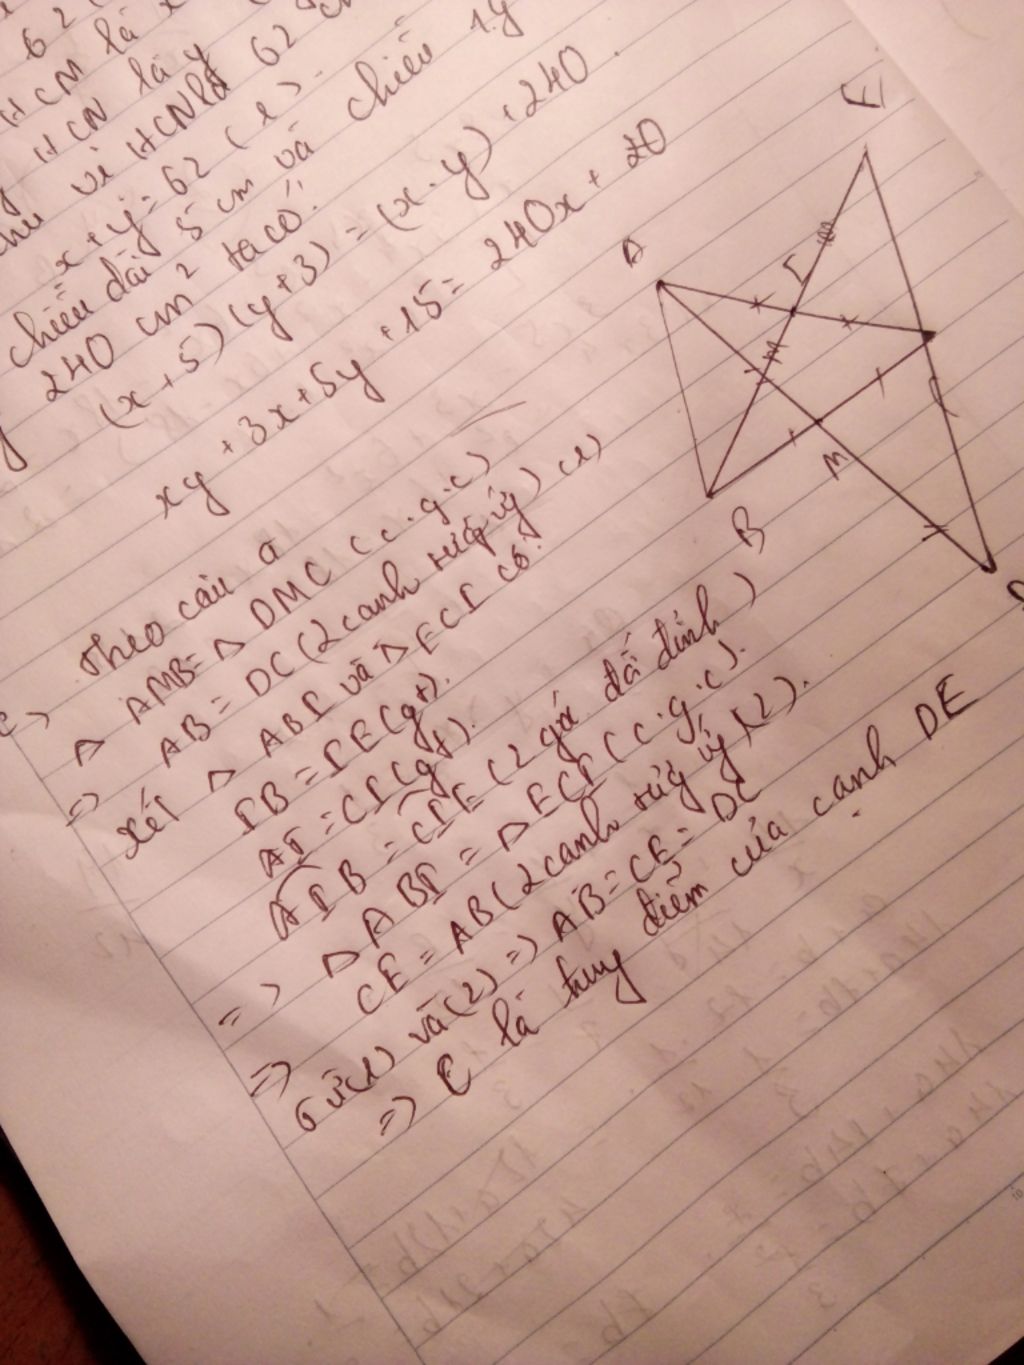 62
HCM là x
HCN là y
vì HCN là 62
x + y = 62 (1).
chiều dài 5 cm và chiều
240 cm² ta có:
(x + 5)(y + 3) = (x . y) + 240.
xy + 3x + 5y + 15 = 240x + 20
Theo câu a
Δ AMB = Δ DMC (c.g.c)
=> AB = DC (2 cạnh tứg ứg) (1)
Xét Δ ABI và Δ ECI có:
IB = IE (gt).
AI = CI (gt).
AIB = CIE (2 góc đđ đỉnh)
=> Δ ABI = Δ ECI (c.g.c).
=> CE = AB (2 cạnh tứg ứg) (2).
Từ (1) và (2) => AB = CE = DC
=> C là trung điểm của cạnh DE
E
A
I
M
C
M
B
D